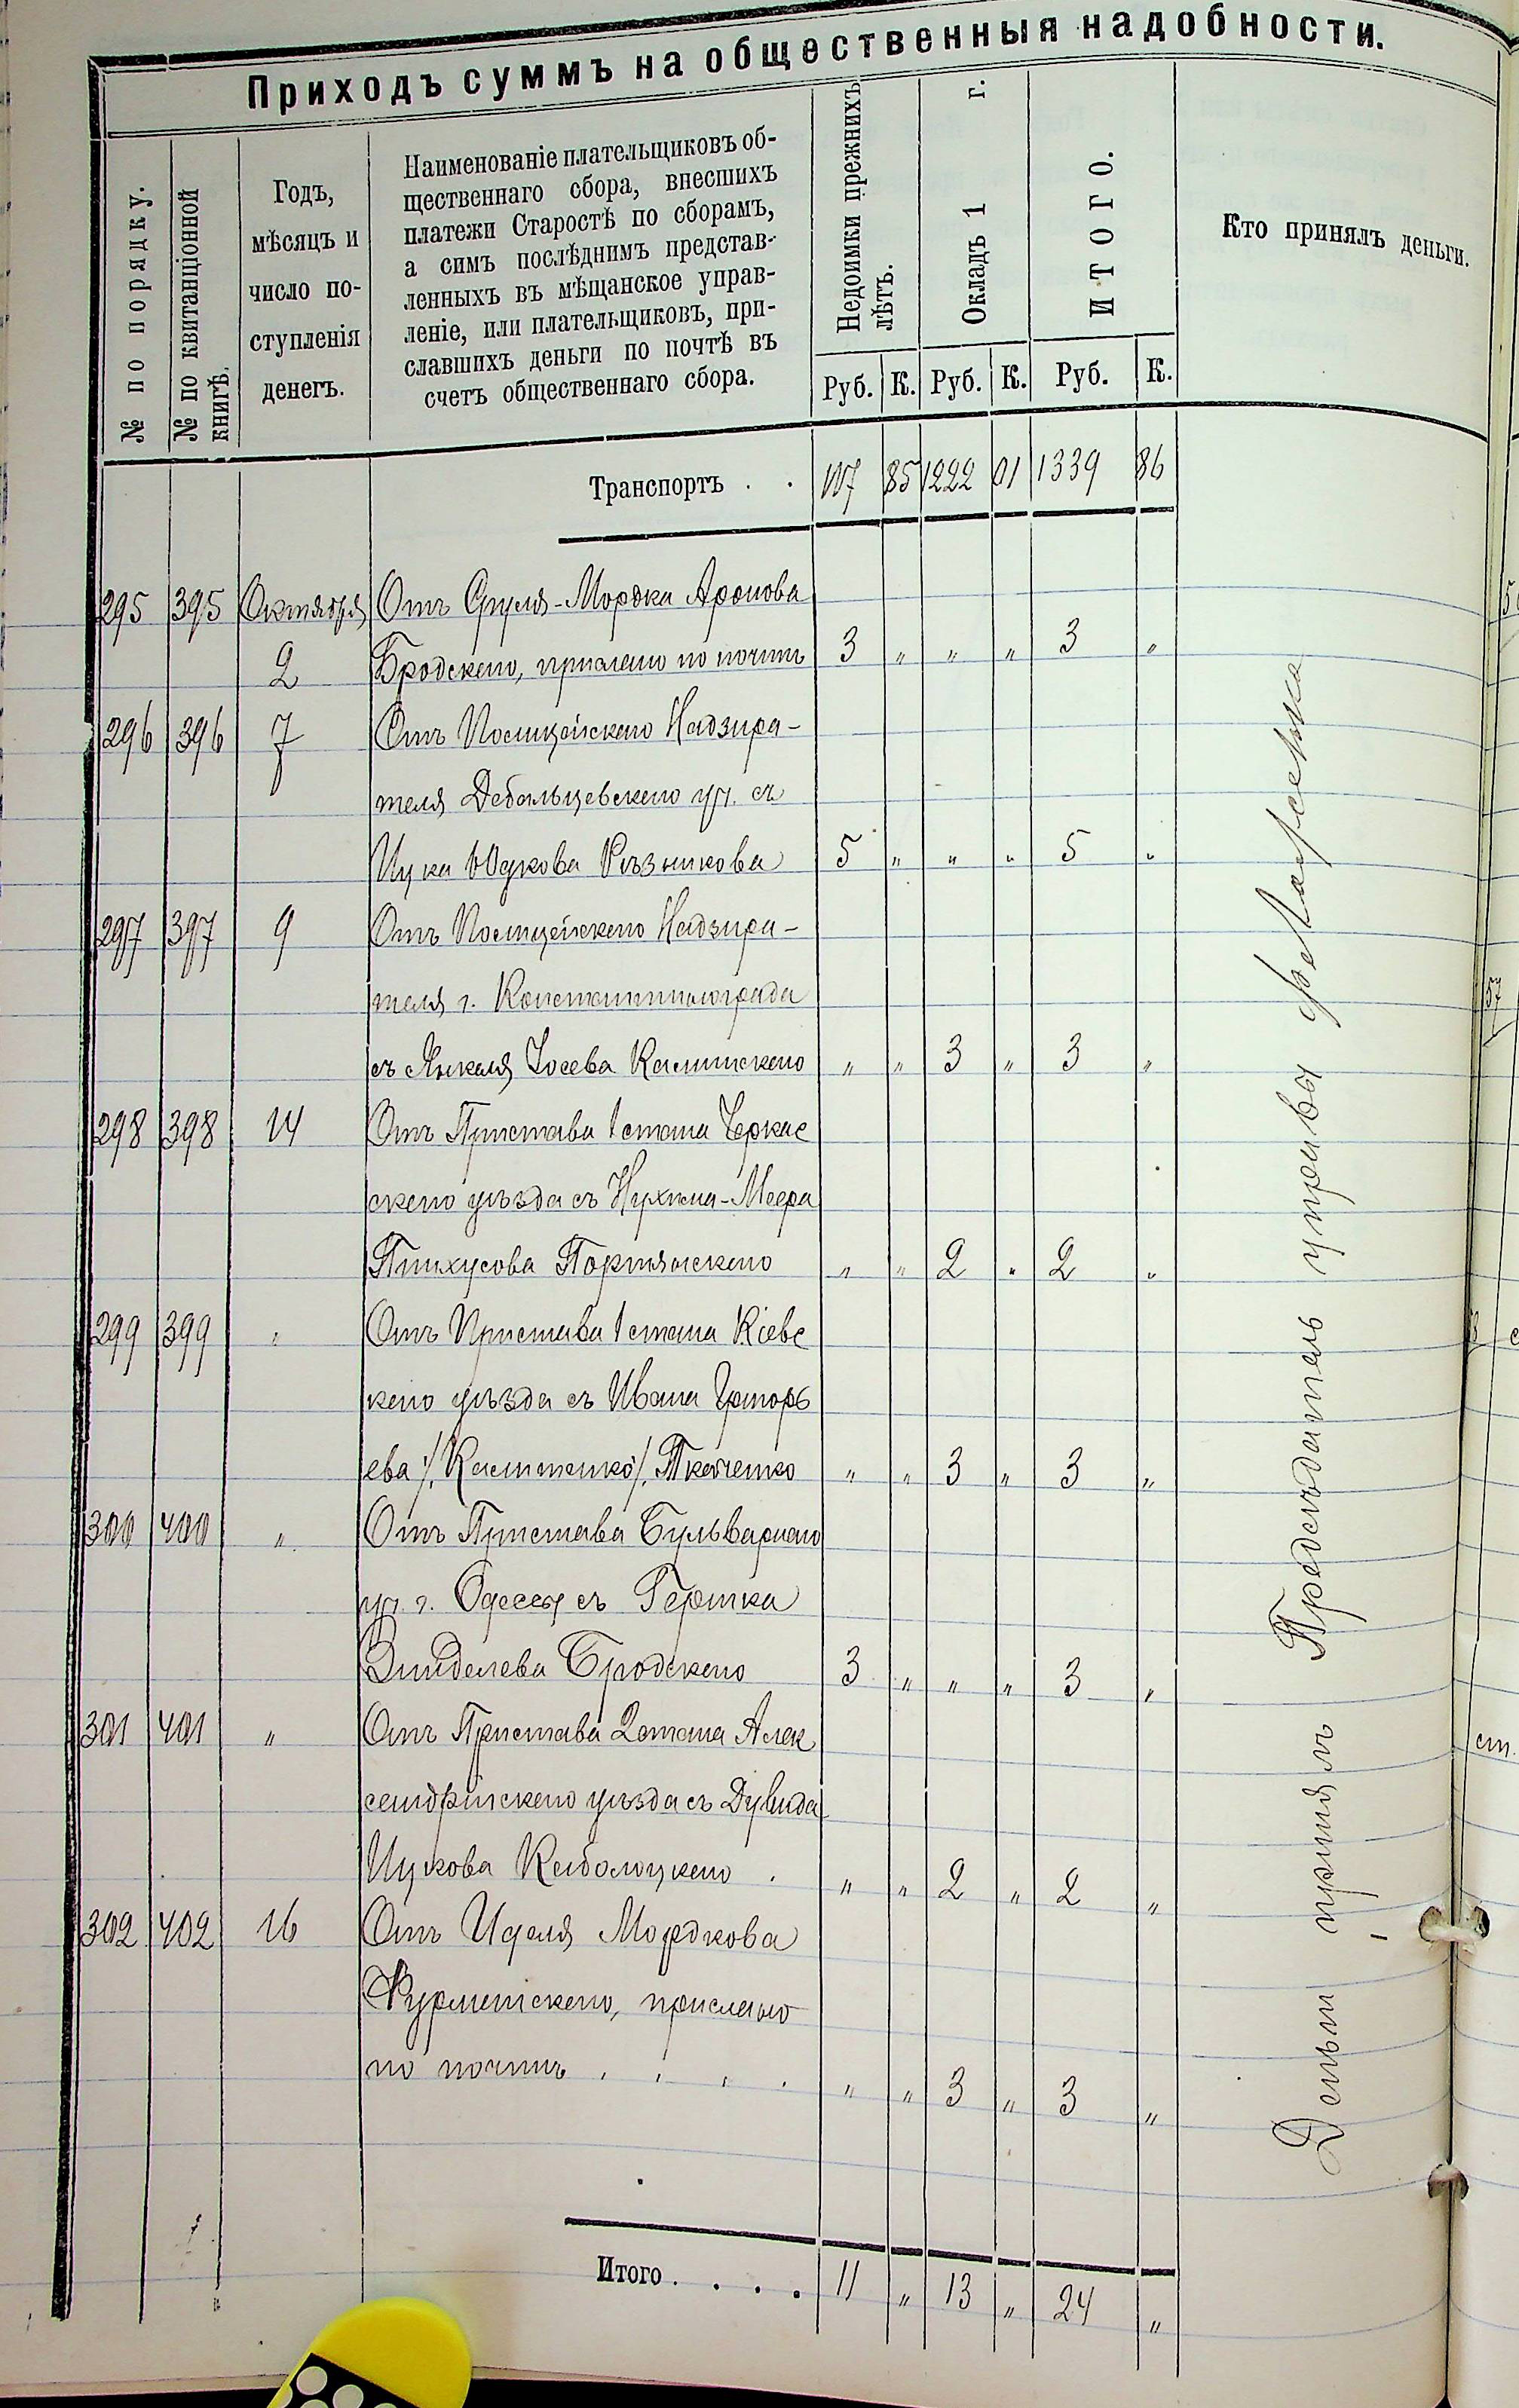 Приходъ суммъ на общественныя надобности.
№ по порядку.
№ по квитанціонной книгѣ.
Годъ,
мѣсяцъ и
число по-
ступленія
денегъ.
Наименованіе плательщиковъ об-
щественнаго сбора, внесшихъ
платежи Старостѣ по сборамъ,
а симъ послѣднимъ представ-
ленныхъ въ мѣщанское управ-
леніе, или плательщиковъ, при-
славшихъ деньги по почтѣ въ
счетъ общественнаго сбора.
Недоимки прежнихъ
лѣтъ.
Окладъ 1 г.
ИТОГО.
Кто принялъ деньги.
Руб. К. Руб. К. Руб. К.
Транспортъ . . 117 85 1222 01 1339 86
295 395 Октября Отъ Сруля-Мордка Аронова
2 Бродскаго, прислано по почтѣ 3 „ „ „ 3 „
296 396 7 Отъ Полицейскаго Надзира-
теля Дебальцевскаго уч. съ
Ицка Юдкова Рѣзникова 5 „ „ „ 5 „
297 397 9 Отъ Полицейскаго Надзира-
теля г. Константинограда
съ Янкеля Іосева Калинскаго „ „ 3 „ 3 „
298 398 14 Отъ Пристава 1 стана Черкас
скаго уѣзда съ Нухима-Меера
Пинхусова Портянскаго „ „ 2 „ 2 „
299 399 „ Отъ Пристава 1 стана Кіевс
каго уѣзда съ Ивана Григорь
ева /Калитенко/ Ткаченко „ „ 3 „ 3 „
300 400 „ Отъ Пристава Бульварнаго
уч. г. Одессы съ Гершка
Зинделева Бродскаго 3 „ „ „ 3 „
301 401 „ Отъ Пристава 2 стана Алек
сандрійскаго уѣзда съ Дувида
Ицкова . „ „ 2 „ 2 „
302 402 16 Отъ Иделя Мордкова
Фурманскаго, прислано
по почтѣ . . . . „ „ 3 „ 3 „
Итого . . . . 11 „ 13 „ 24 „
Деньги принялъ Предсѣдатель управы